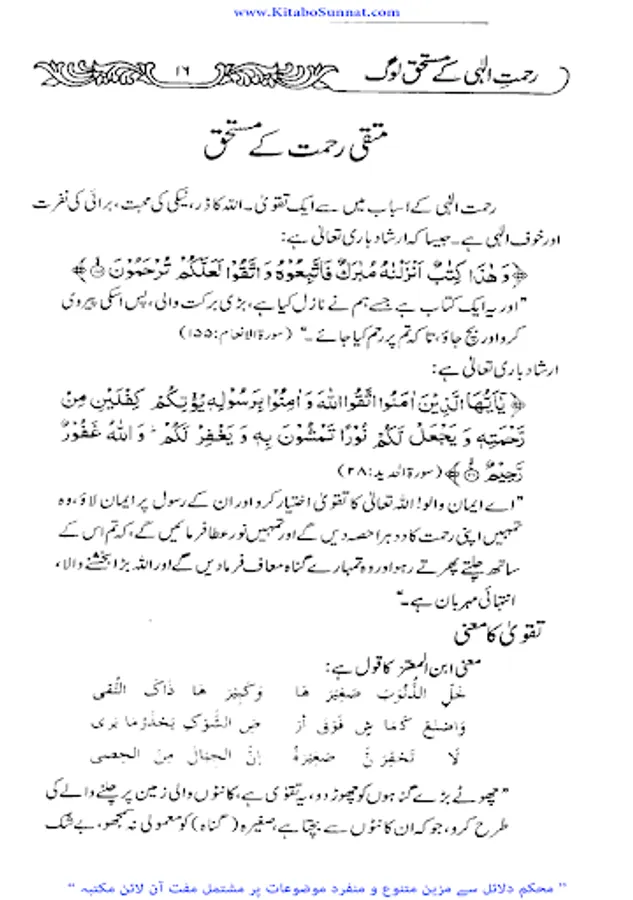 www.KitaboSunnat.com
رحمتِ الٰہی کے مستحق لوگ
۱۶
متقی رحمت کے مستحق
رحمت الٰہی کے اسباب میں سے ایک تقویٰ۔ اللہ کا ڈر، نیکی کی محبت، برائی کی نفرت
اور خوف الٰہی ہے۔ جیسا کہ ارشاد باری تعالیٰ ہے:
﴿وَ هٰذَا كِتٰبٌ اَنْزَلْنٰهُ مُبٰرَكٌ فَاتَّبِعُوْهُ وَ اتَّقُوْا لَعَلَّكُمْ تُرْحَمُوْنَ﴾
"اور یہ ایک کتاب ہے جسے ہم نے نازل کیا ہے، بڑی برکت والی، پس اسکی پیروی
کرو اور بچ جاؤ، تاکہ تم پر رحم کیا جائے۔" (سورۃ الانعام:۱۵۵)
ارشاد باری تعالیٰ ہے:
﴿يٰۤاَيُّهَا الَّذِيْنَ اٰمَنُوا اتَّقُوا اللّٰهَ وَ اٰمِنُوْا بِرَسُوْلِهٖ يُؤْتِكُمْ كِفْلَيْنِ مِنْ
رَّحْمَتِهٖ وَ يَجْعَلْ لَّكُمْ نُوْرًا تَمْشُوْنَ بِهٖ وَ يَغْفِرْ لَكُمْ ؕ وَ اللّٰهُ غَفُوْرٌ
رَّحِيْمٌ﴾ (سورۃ الحدید:۲۸)
"اے ایمان والو! اللہ تعالیٰ کا تقویٰ اختیار کرو اور ان کے رسول پر ایمان لاؤ، وہ
تمہیں اپنی رحمت کا دوہرا حصہ دیں گے اور تمہیں نور عطا فرمائیں گے، کہ تم اس کے
ساتھ چلتے پھرتے رہو اور وہ تمہارے گناہ معاف فرمادیں گے اور اللہ بڑا بخشنے والا،
انتہائی مہربان ہے۔"
تقویٰ کا معنی
معنی ابن المعتز کا قول ہے:
خَلِّ الذُّنُوْبَ صَغِيْرَ هَا وَكَبِيْرَ هَا ذَاكَ التُّقٰى
وَاصْنَعْ كَمَا شٍ فَوْقَ اَرْ ضِ الشَّوْكِ يَحْذَرُ مَا يَرٰى
لَا تَحْقِرَ نَّ صَغِيْرَةً اِنَّ الْجِبَالَ مِنَ الْحِصٰى
"چھوٹے بڑے گناہوں کو چھوڑ دو، یہ تقویٰ ہے، کانٹوں والی زمین پر چلنے والے کی
طرح کرو، جو کہ ان کانٹوں سے بچتا ہے، صغیرہ (گناہ) کو معمولی نہ سمجھو، بے شک
" محکم دلائل سے مزین متنوع و منفرد موضوعات پر مشتمل مفت آن لائن مکتبہ "